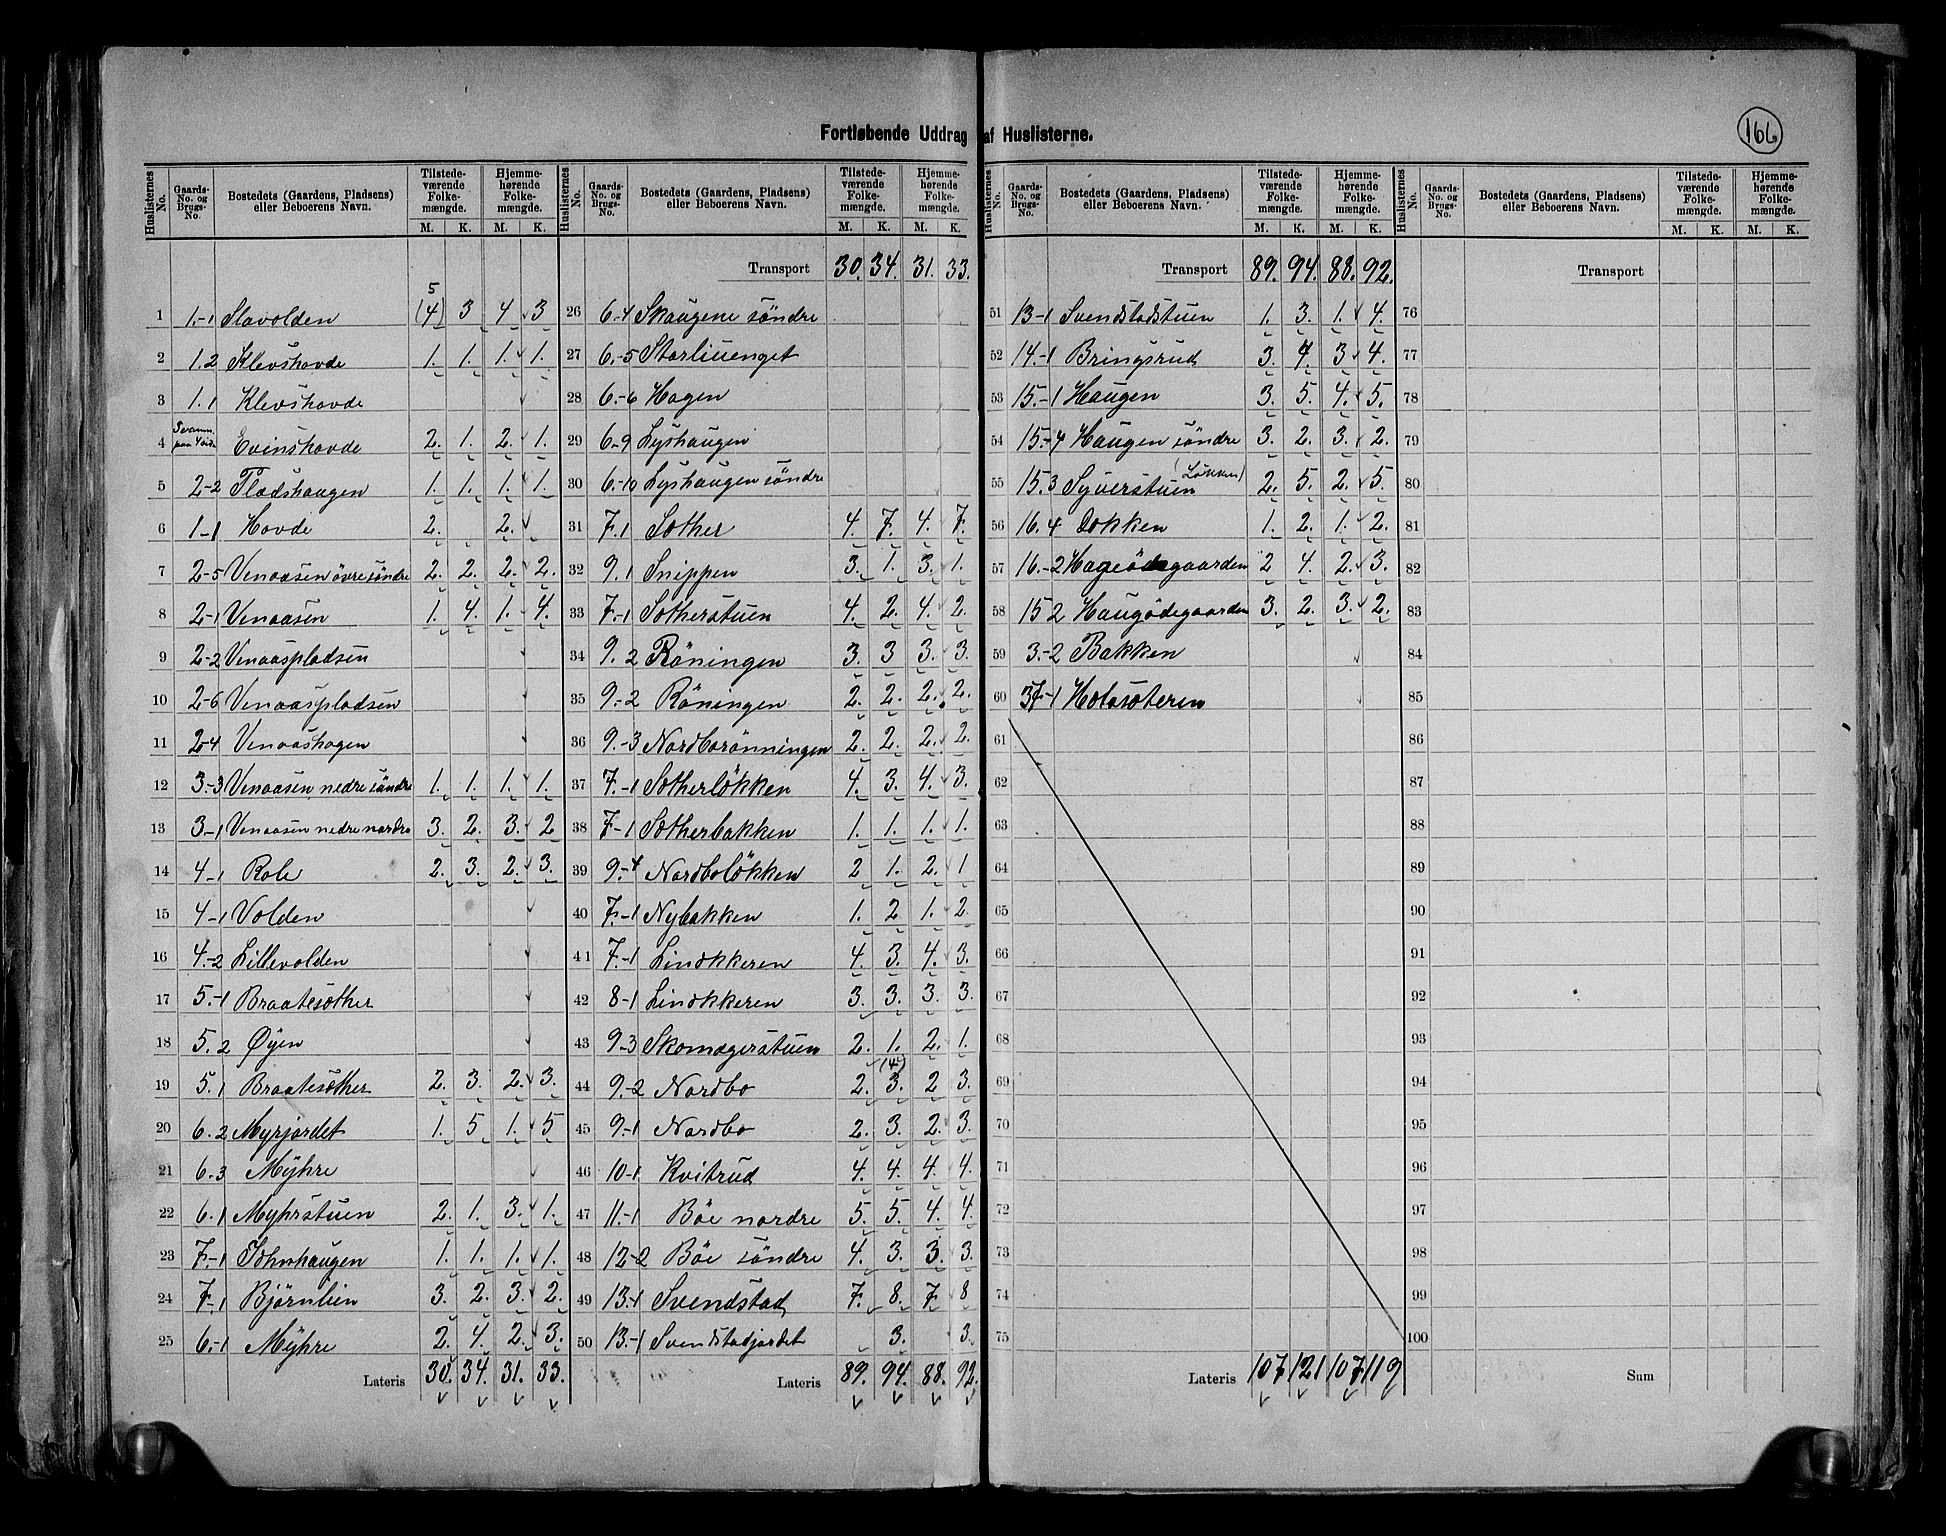 Fortløbende Uddrag af Huslisterne.
166
Huslisternes No. | Gaards-No. og Brugs-No. | Bostedets (Gaardens, Pladsens) eller Beboerens Navn. | Tilstedeværende Folkemængde. M. K. | Hjemmehørende Folkemængde. M. K.
1 1.-1 Slavolden 5 (4) 3 4 3
2 1.2 Klevshovde 1. 1. 1. 1.
3 1.1 Klevshovde
4 Evinshovde 2. 1. 2. 1.
5 2-2 Fladshaugen 1. 1. 1. 1.
6 1-1 Hovde 2. 2.
7 2-5 Venaasen övre söndre 2. 2. 2. 2.
8 2-1 Venaasen 1. 4. 1. 4.
9 2-2 Venaaspladsen
10 2-6 Venaaspladsen
11 2-4 Venaashagen
12 3-3 Venaasen nedre söndre 1. 1. 1. 1.
13 3-1 Venaasen nedre nordre 3. 2. 3. 2
14 4-1 Role 2. 3. 2. 3.
15 4-1 Volden
16 4-2 Lillevolden
17 5.-1 Braatesöther
18 5.2 Øyen
19 5.1 Braatesöther 2. 3. 2. 3.
20 6.2 Myrjordet 1. 5 1. 5
21 6.3 Mÿhre
22 6.1 Myhrstuen 2. 1. 3. 1.
23 7-1 Johnhaugen 1. 1. 1. 1.
24 7-1 Björnlien 3. 2. 3. 2.
25 6.-1 Mÿhre 2. 4. 2. 3.
Lateris 30. 34. 31. 33.
Transport 30. 34. 31. 33.
26 6-4 Skaugene söndre
27 6.-5 Storliuenget
28 6.-6 Hagen
29 6-9 Lyshaugen
30 6.-10 Lyshaugen söndre
31 7.1 Sother 4. 7. 4. 7.
32 9.1 Snippen 3. 1. 3. 1.
33 7-1 Sotherstuen 4. 2. 4. 2.
34 9.2 Röningen 3. 3 3. 3.
35 9.-2 Röningen 2. 2. 2. 2.
36 9.-3 Nordborönningen 2. 2. 2. 2.
37 7.-1 Sotherlökken 4. 3. 4. 3.
38 7-1 Sotherbakken 1. 1. 1. 1.
39 9.-4 Nordbolökken 2 1. 2. 1
40 7.-1 Nybakken 1. 2 1. 2.
41 7.-1 Linökkeren 4. 3. 4. 3.
42 8-1 Linökkeren 3. 3. 3. 3.
43 9-3 Skomagerstuen 2. 1. 2. 1.
44 9.-2 Nordbo 2. (4) 3. 2 3.
45 9.-1 Nordbo 2. 3. 2. 3.
46 10-1 Kvitrud 4. 4. 4. 4.
47 11.-1 Böe nordre 5. 5. 4. 4.
48 12-2 Böe söndre 4. 3. 3. 3.
49 13.-1 Svendstad 7. 8. 7. 8
50 13.-1 Svendstadjordet 3. 3.
Lateris 89. 94. 88. 92.
Transport 89. 94. 88. 92.
51 13-1 Svendstadstuen 1. 3. 1. 4.
52 14.-1 Bringsrud 3. 4. 3 4.
53 15.-1 Haugen 3. 5. 4. 5.
54 15.-4 Haugen söndre 3. 2. 3. 2.
55 15.3 Syverstuen (Lökken) 2. 5. 2. 5.
56 16.4 Dokken 1. 2. 1. 2.
57 16.-2 Hageödegaarden 2 4. 2. 3.
58 15 2 Haugödegaarden 3. 2. 3. 2.
59 3.-2 Bakken
60 37-1 Hotasæteren
61
62
63
64
65
66
67
68
69
70
71
72
73
74
75
Lateris 107 121 107 119
Transport
76
77
78
79
80
81
82
83
84
85
86
87
88
89
90
91
92
93
94
95
96
97
98
99
100
Sum